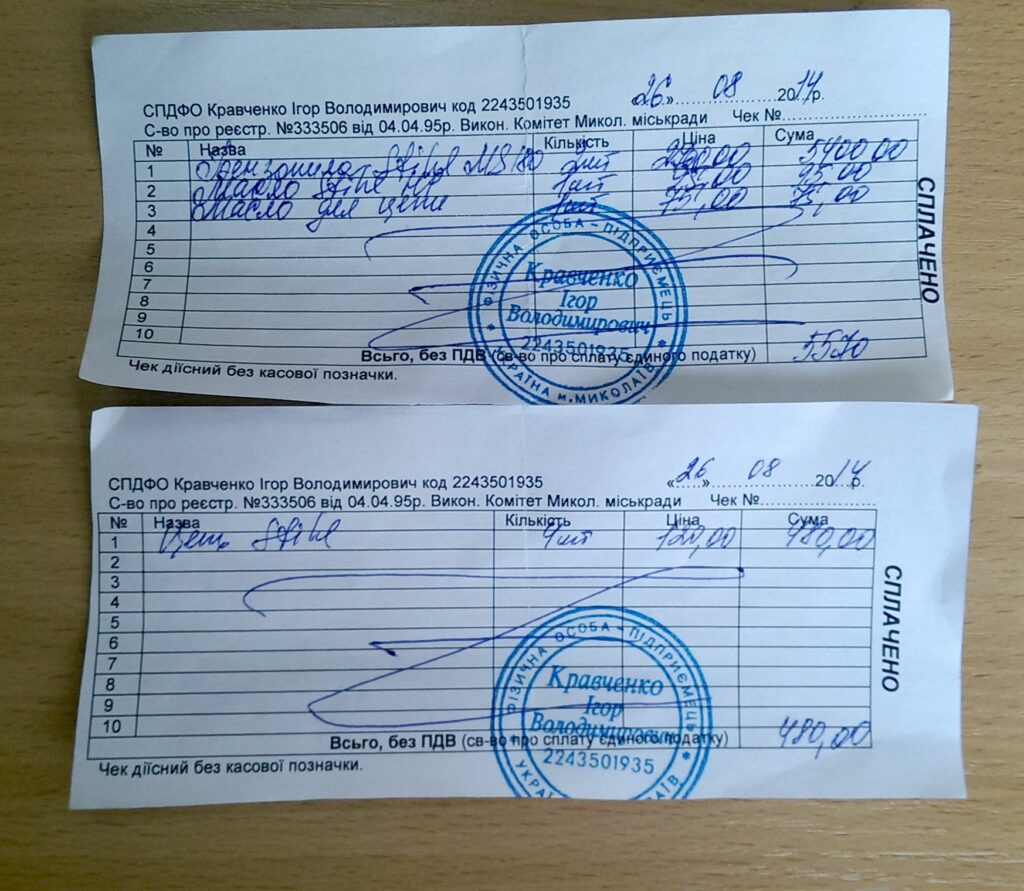 «26» 08 2014р.
СПДФО Кравченко Ігор Володимирович код 2243501935
С-во про реєстр. №333506 від 04.04.95р. Викон. Комітет Микол. міськради Чек №
№ Назва Кількість Ціна Сума
1 Бензопила Stihl MS180 2шт 5400,00
2 Масло Stihl 1шт 95,00 95,00
3 Масло для цепи 1шт 75,00 75,00
4
5
6
7
8
9
10
Всього, без ПДВ (св-во про сплату єдиного податку) 5570
Чек діїсний без касової позначки.
СПЛАЧЕНО
ФІЗИЧНА ОСОБА - ПІДПРИЄМЕЦЬ
Кравченко
Ігор
Володимирович
2243501935
УКРАЇНА м.МИКОЛАЇВ
«26» 08 2014р.
СПДФО Кравченко Ігор Володимирович код 2243501935
С-во про реєстр. №333506 від 04.04.95р. Викон. Комітет Микол. міськради Чек №
№ Назва Кількість Ціна Сума
1 Цепь Stihl 4шт 120,00 480,00
2
3
4
5
6
7
8
9
10
Всього, без ПДВ (св-во про сплату єдиного податку) 480,00
Чек діїсний без касової позначки.
СПЛАЧЕНО
ФІЗИЧНА ОСОБА - ПІДПРИЄМЕЦЬ
Кравченко
Ігор
Володимирович
2243501935